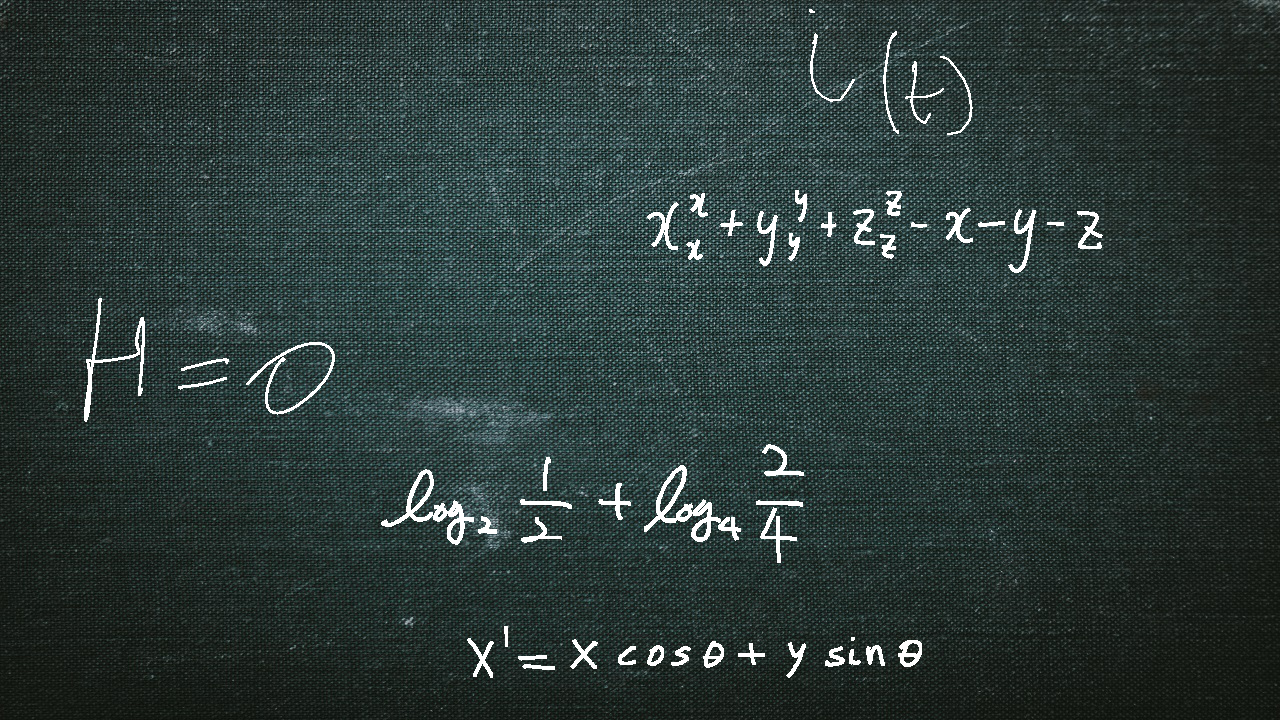 i(t)
x_x^x + y_y^y + z_z^z - x - y - z
H = 0
log_2 \frac{1}{2} + log_4 \frac{2}{4}
x' = x cos θ + y sin θ